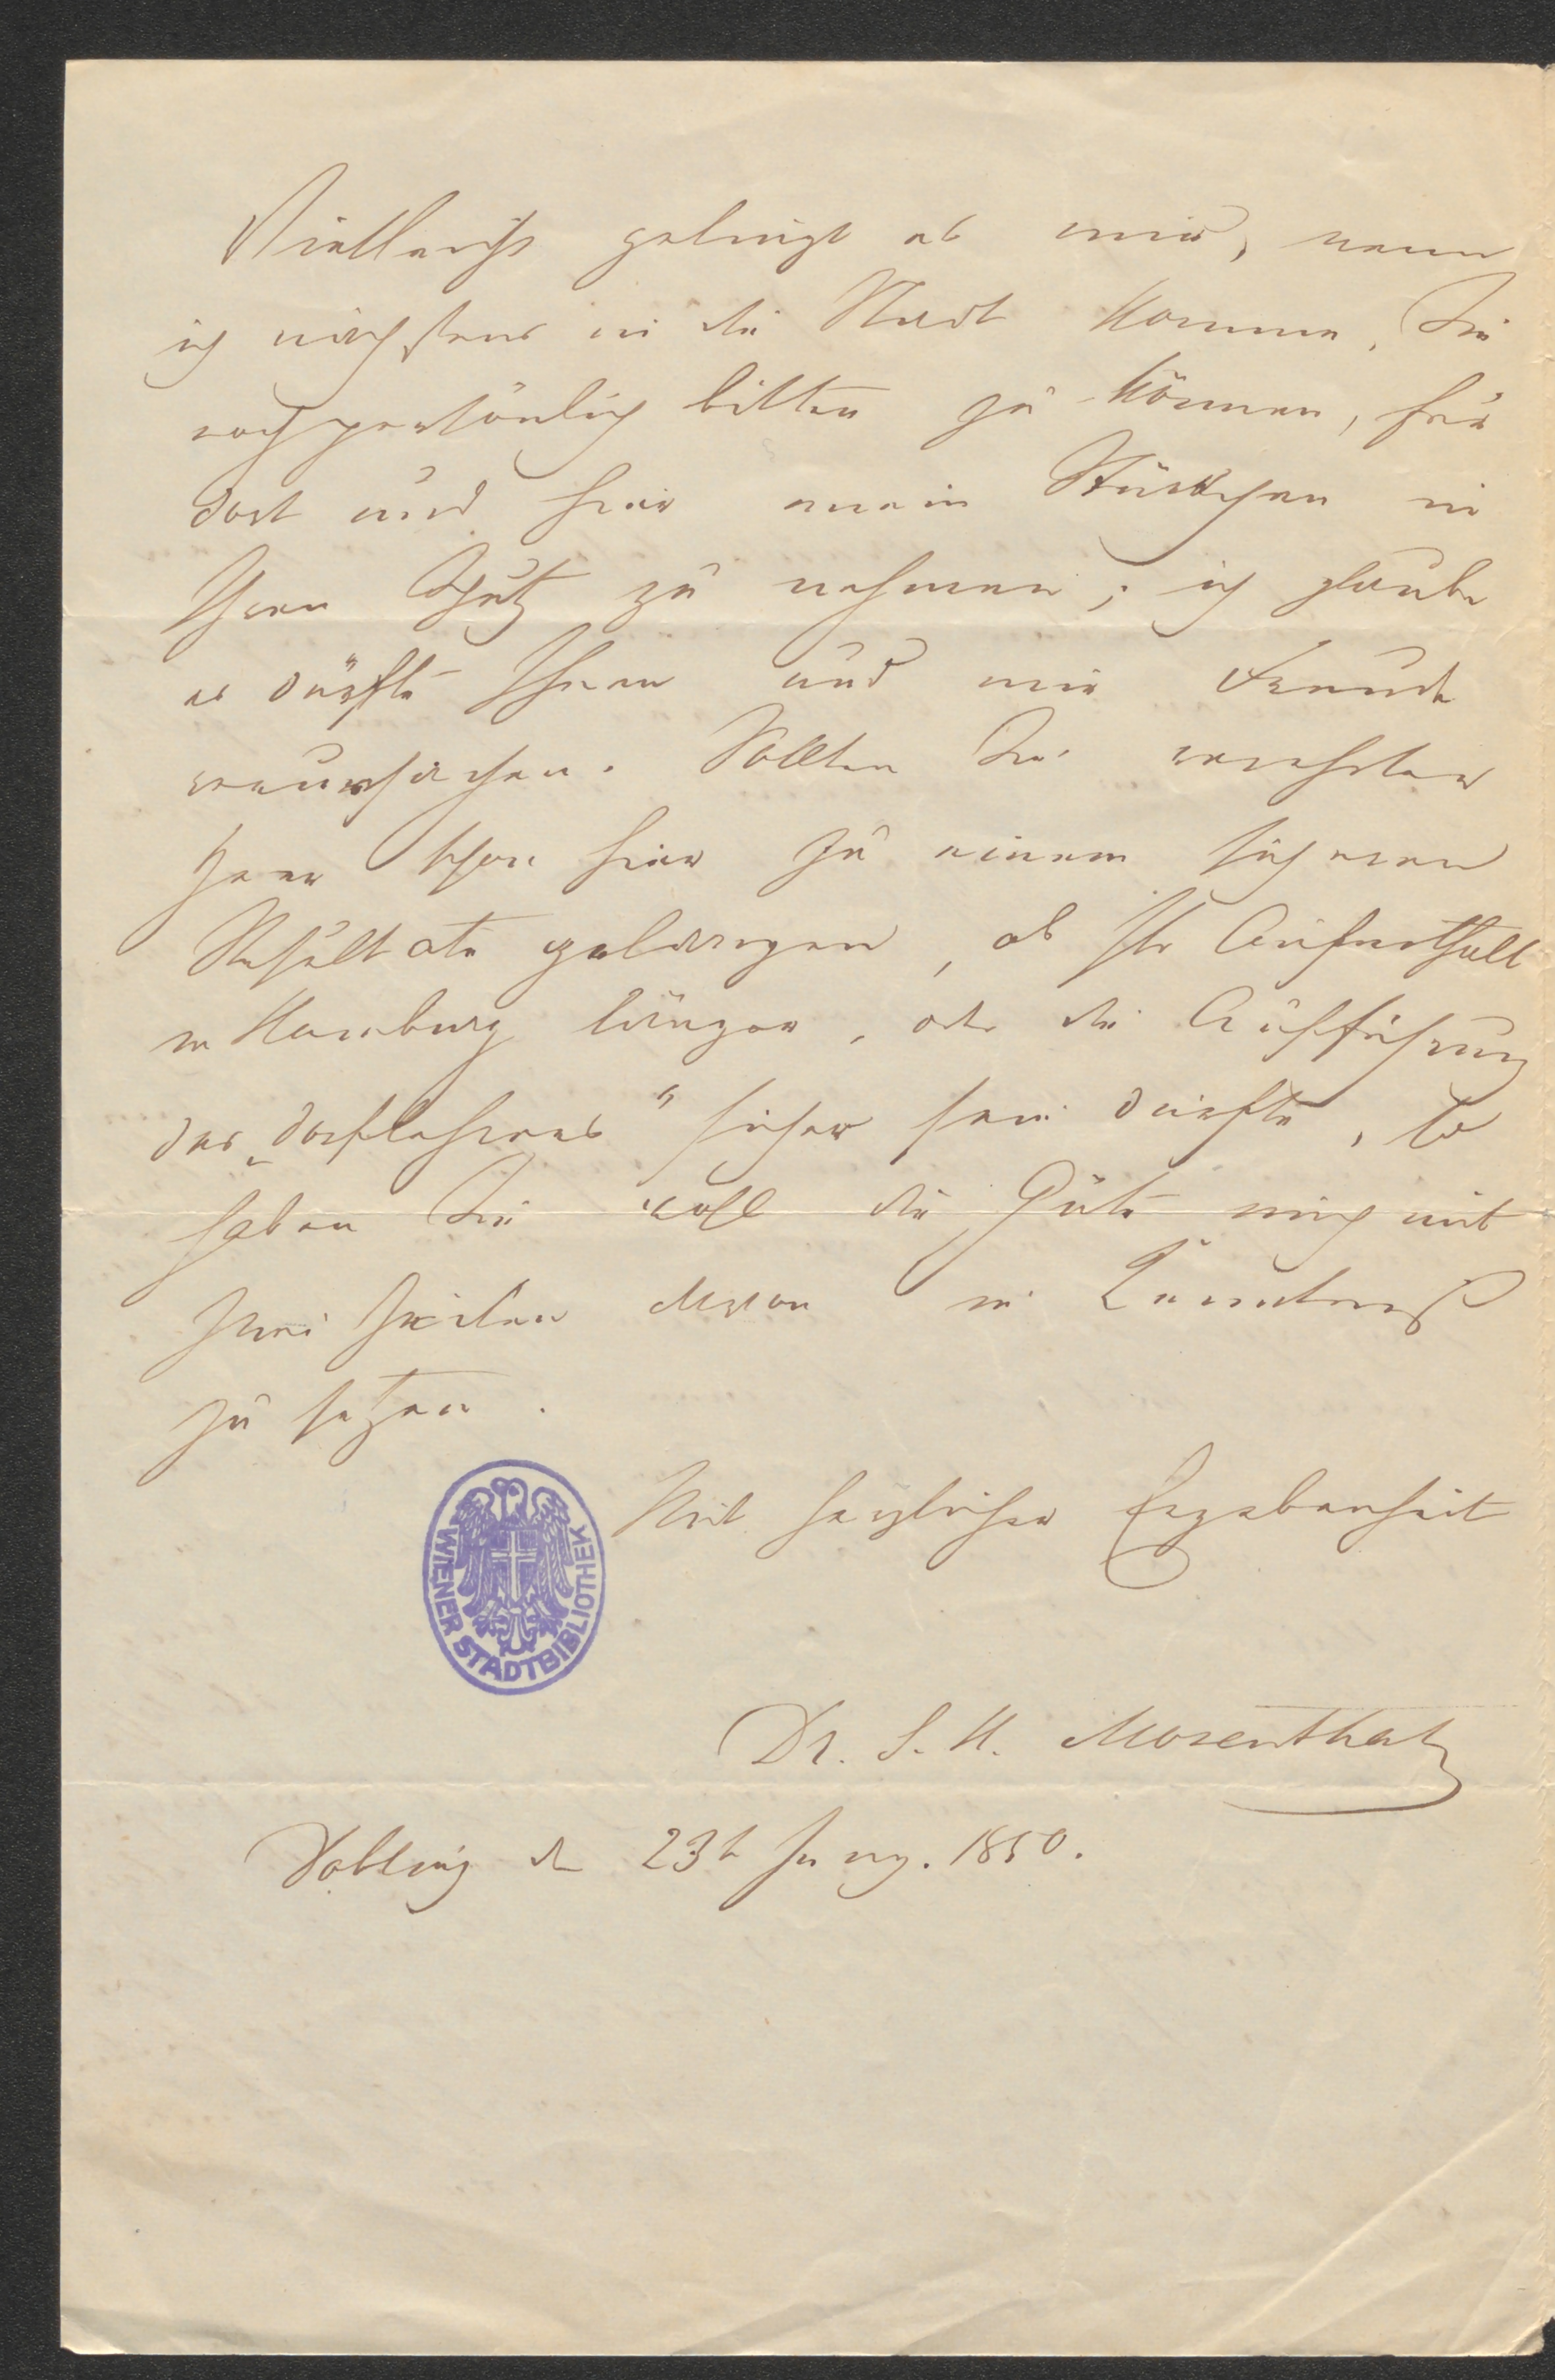 Vielleicht gelingt es mir, wenn
ich nächstens in die Stadt komme, Sie
noch persönlich bitten zu können, für
dort und hier mein Stückchen in
Ihren Schutz zu nehmen; ich glaube
es dürfte Ihnen und mir Freude
verursachen. Sollten Sie verehrter
Herr schon hier zu einem sicheren
Resultate gelangen, ob Ihr Aufenthalt
in Hamburg länger, oder die Aufführung
des „Dorflehrers" sicher sein dürfte, so
haben Sie wohl die Güte mich mit
zwei Zeilen davon in Kenntniß
zu setzen.
Mit herzlicher Ergebenheit
WIENER STADTBIBLIOTHEK
Dr. S. H. Mosenthal
Döbling d 23t 1850.